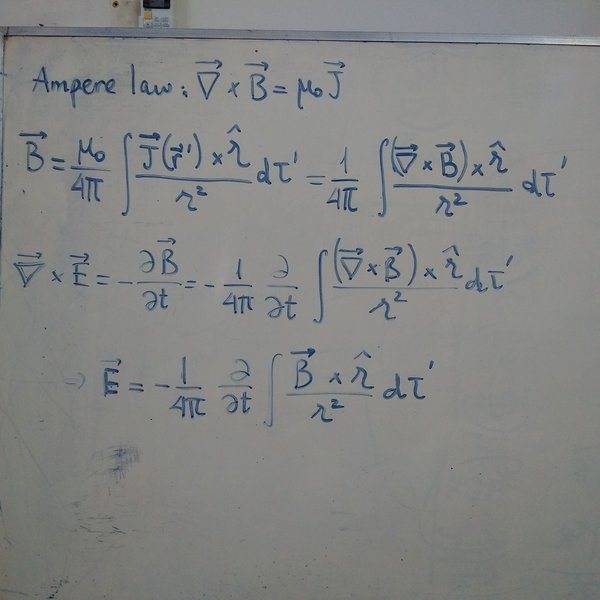 Ampere law: ∇⃗ × B⃗ = μ₀ J⃗
B⃗ = μ₀/4π ∫ J⃗(r⃗') × r̂ / r² dτ' = 1/4π ∫ (∇⃗ × B⃗) × r̂ / r² dτ'
∇⃗ × E⃗ = - ∂B⃗/∂t = - 1/4π ∂/∂t ∫ (∇⃗ × B⃗) × r̂ / r² dτ'
⇒ E⃗ = - 1/4π ∂/∂t ∫ B⃗ × r̂ / r² dτ'